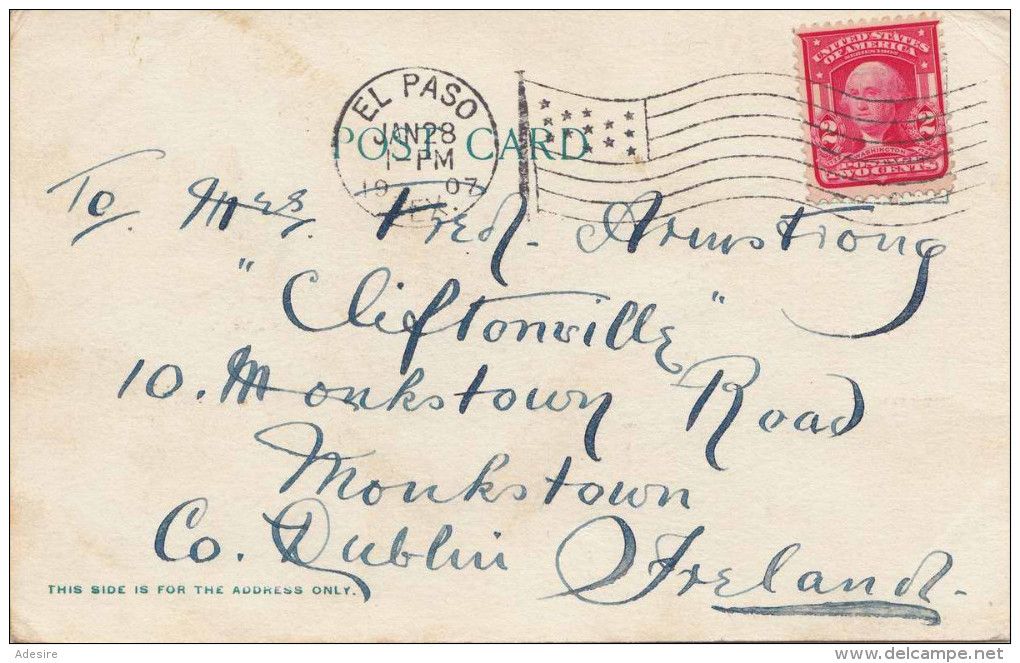 UNITED STATES
OF AMERICA
SERIES 1902
2 2
WASHINGTON
POSTAGE
TWO CENTS
EL PASO
JAN 28
1 - PM
1907
TEX.
POST CARD
To Mrs. Fred. Armstrong
"Cliftonville"
10. Monkstown Road
Monkstown
Co. Dublin Ireland.
THIS SIDE IS FOR THE ADDRESS ONLY.
Adesire
delcampe.net